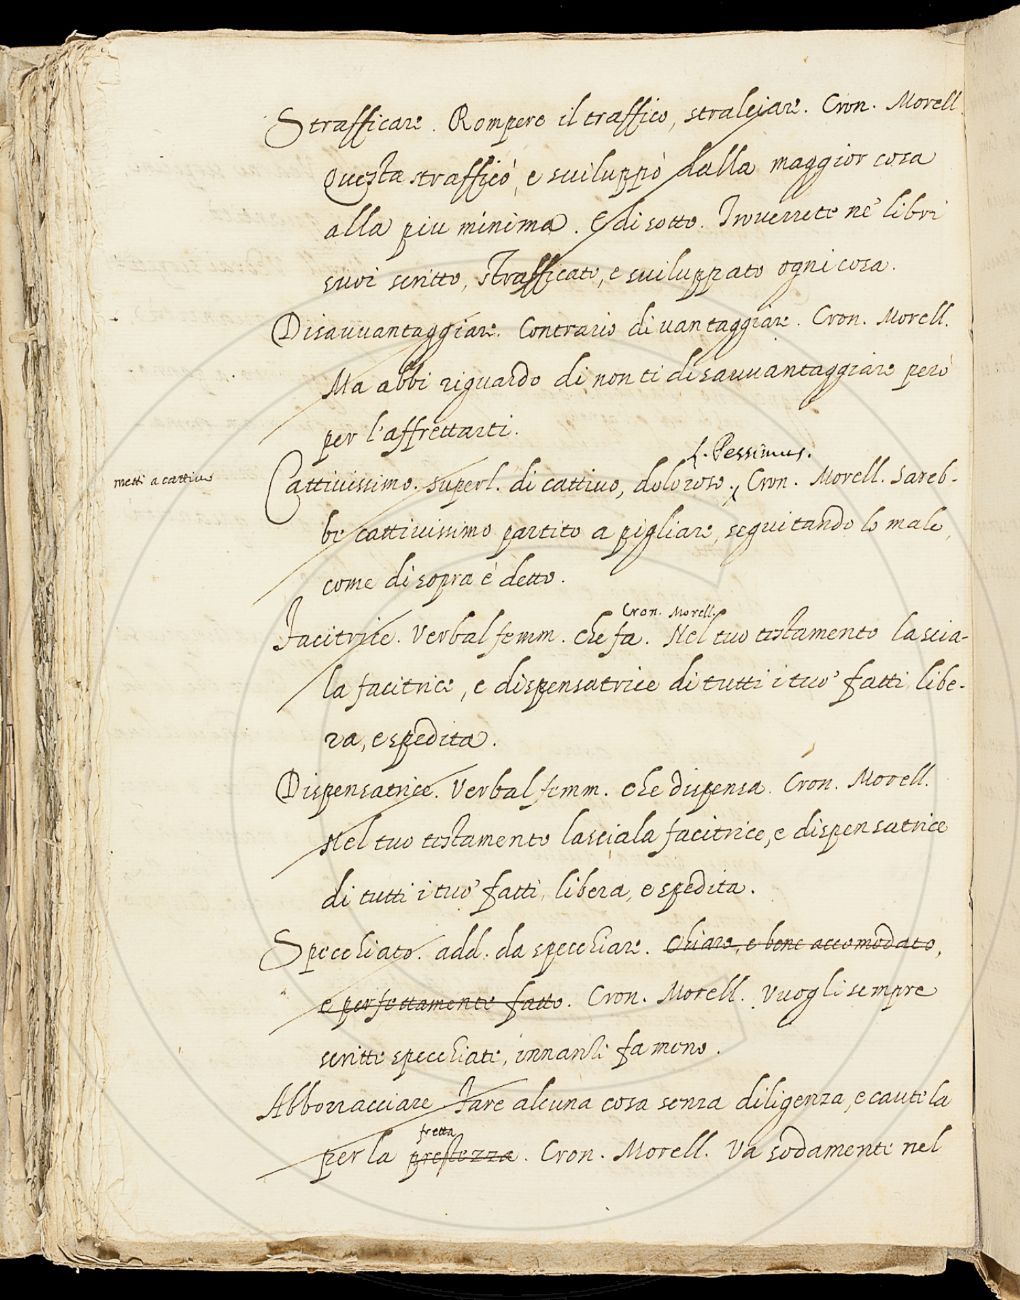 Strafficare. Rompere il traffico, stralciare. Cron. Morell.
Questa strafficò, e sviluppò dalla maggior cosa
alla piu minima. E di sotto. Troverrete ne' libri
suoi scritto, strafficato, e sviluppato ogni cosa.
Disavvantaggiare. Contrario di vantaggiare. Cron. Morell.
Ma abbi riguardo di non ti disavvantaggiare però
per l'affrettarti.
l. Pessimus.
metti a cattivo
Cattivissimo. superl. di cattivo, doloroso. Cron. Morell. Sareb-
be cattivissimo partito a pigliare, seguitando lo male,
come di sopra è detto.
Cron. Morell.
Facitrice. Verbal femm. che fa. Nel tuo testamento lascia-
la facitrice, e dispensatrice di tutti i tuo' fatti, libe-
ra, e spedita.
Dispensatrice. Verbal femm. che dispensa. Cron. Morell.
Nel tuo testamento lasciala facitrice, e dispensatrice
di tutti i tuo' fatti, libera, e spedita.
Specchiato. add. da specchiare. Chiare, e bene accomodato,
e perfettamente fatto. Cron. Morell. Vuogli sempre
scritte specchiate, innanzi fa meno.
Abborracciare Fare alcuna cosa senza diligenza, e cautela
fretta
per la prestezza. Cron. Morell. Va sodamente nel